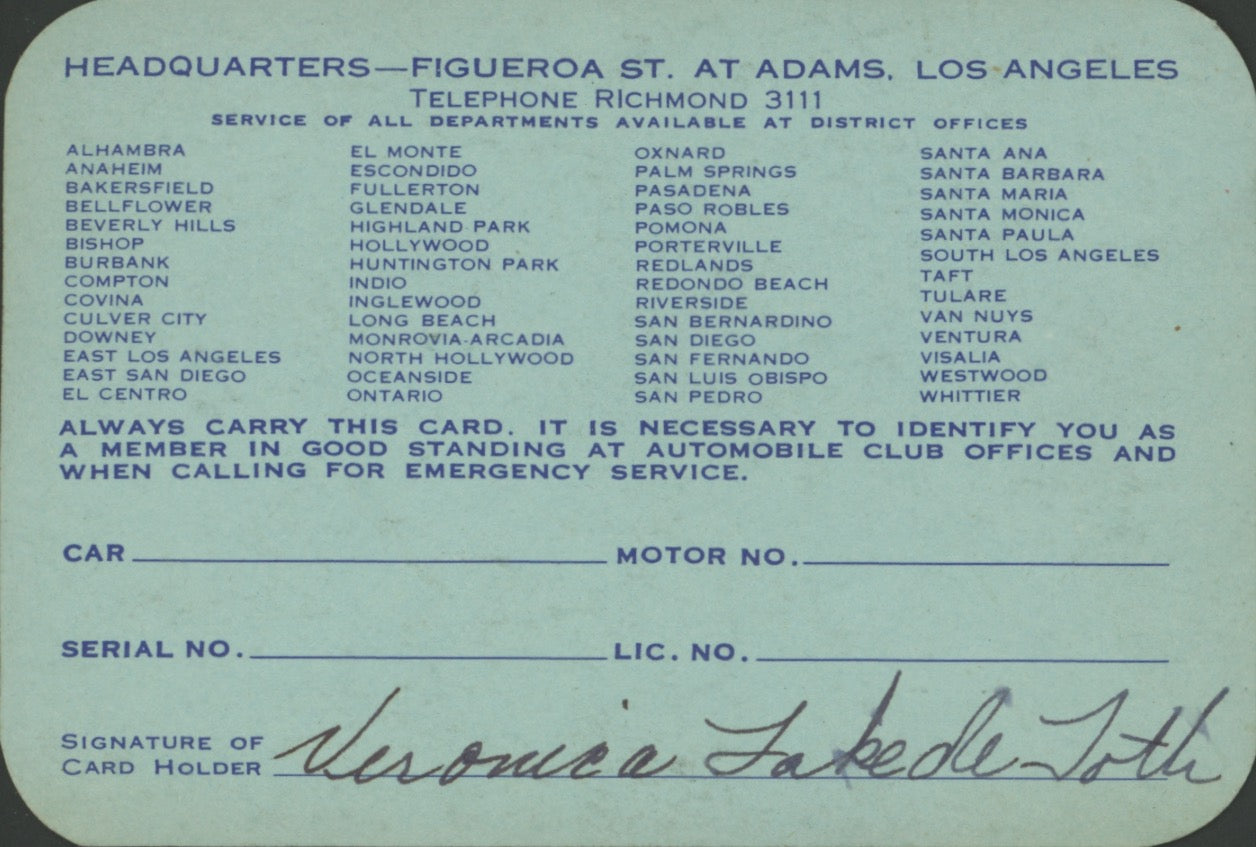 HEADQUARTERS—FIGUEROA ST. AT ADAMS, LOS ANGELES
TELEPHONE RICHMOND 3111
SERVICE OF ALL DEPARTMENTS AVAILABLE AT DISTRICT OFFICES
ALHAMBRA
ANAHEIM
BAKERSFIELD
BELLFLOWER
BEVERLY HILLS
BISHOP
BURBANK
COMPTON
COVINA
CULVER CITY
DOWNEY
EAST LOS ANGELES
EAST SAN DIEGO
EL CENTRO
EL MONTE
ESCONDIDO
FULLERTON
GLENDALE
HIGHLAND PARK
HOLLYWOOD
HUNTINGTON PARK
INDIO
INGLEWOOD
LONG BEACH
MONROVIA-ARCADIA
NORTH HOLLYWOOD
OCEANSIDE
ONTARIO
OXNARD
PALM SPRINGS
PASADENA
PASO ROBLES
POMONA
PORTERVILLE
REDLANDS
REDONDO BEACH
RIVERSIDE
SAN BERNARDINO
SAN DIEGO
SAN FERNANDO
SAN LUIS OBISPO
SAN PEDRO
SANTA ANA
SANTA BARBARA
SANTA MARIA
SANTA MONICA
SANTA PAULA
SOUTH LOS ANGELES
TAFT
TULARE
VAN NUYS
VENTURA
VISALIA
WESTWOOD
WHITTIER
ALWAYS CARRY THIS CARD. IT IS NECESSARY TO IDENTIFY YOU AS
A MEMBER IN GOOD STANDING AT AUTOMOBILE CLUB OFFICES AND
WHEN CALLING FOR EMERGENCY SERVICE.
CAR MOTOR NO.
SERIAL NO. LIC. NO.
SIGNATURE OF
CARD HOLDER Veronica Lake de Toth